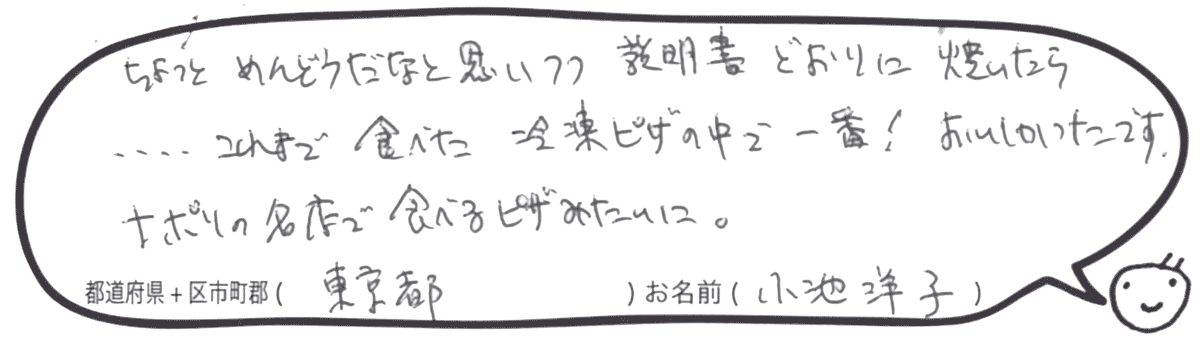 ちょっと めんどうだなと思いつつ 説明書 どおりに 焼いたら
....これまで 食べた 冷凍ピザの中で 一番! おいしかったです.
ナポリの名店で 食べるピザみたいに。
都道府県+区市町郡( 東京都 )お名前( 小池洋子 )